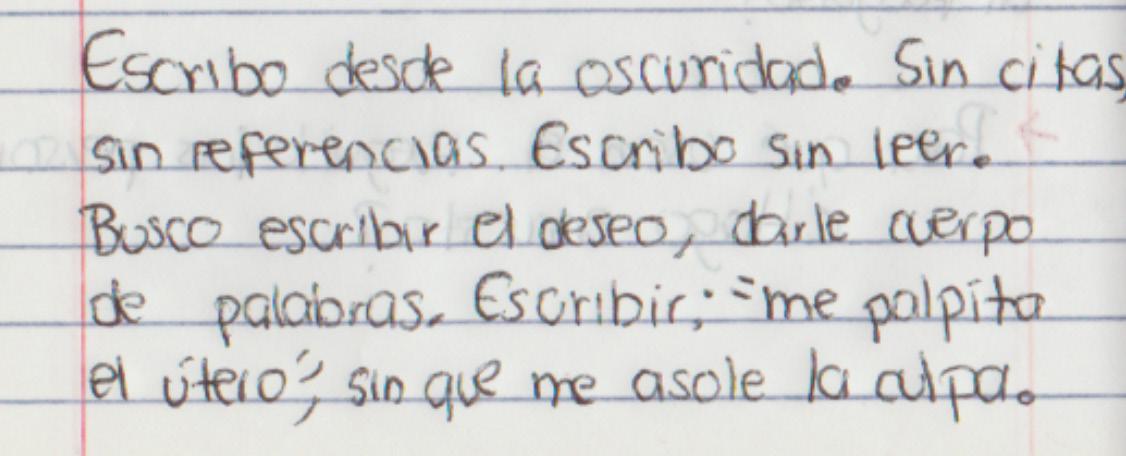 Escribo desde la oscuridad. Sin citas,
sin referencias. Escribo sin leer.
Busco escribir el deseo, darle cuerpo
de palabras. Escribir: "me palpita
el útero", sin que me asole la culpa.